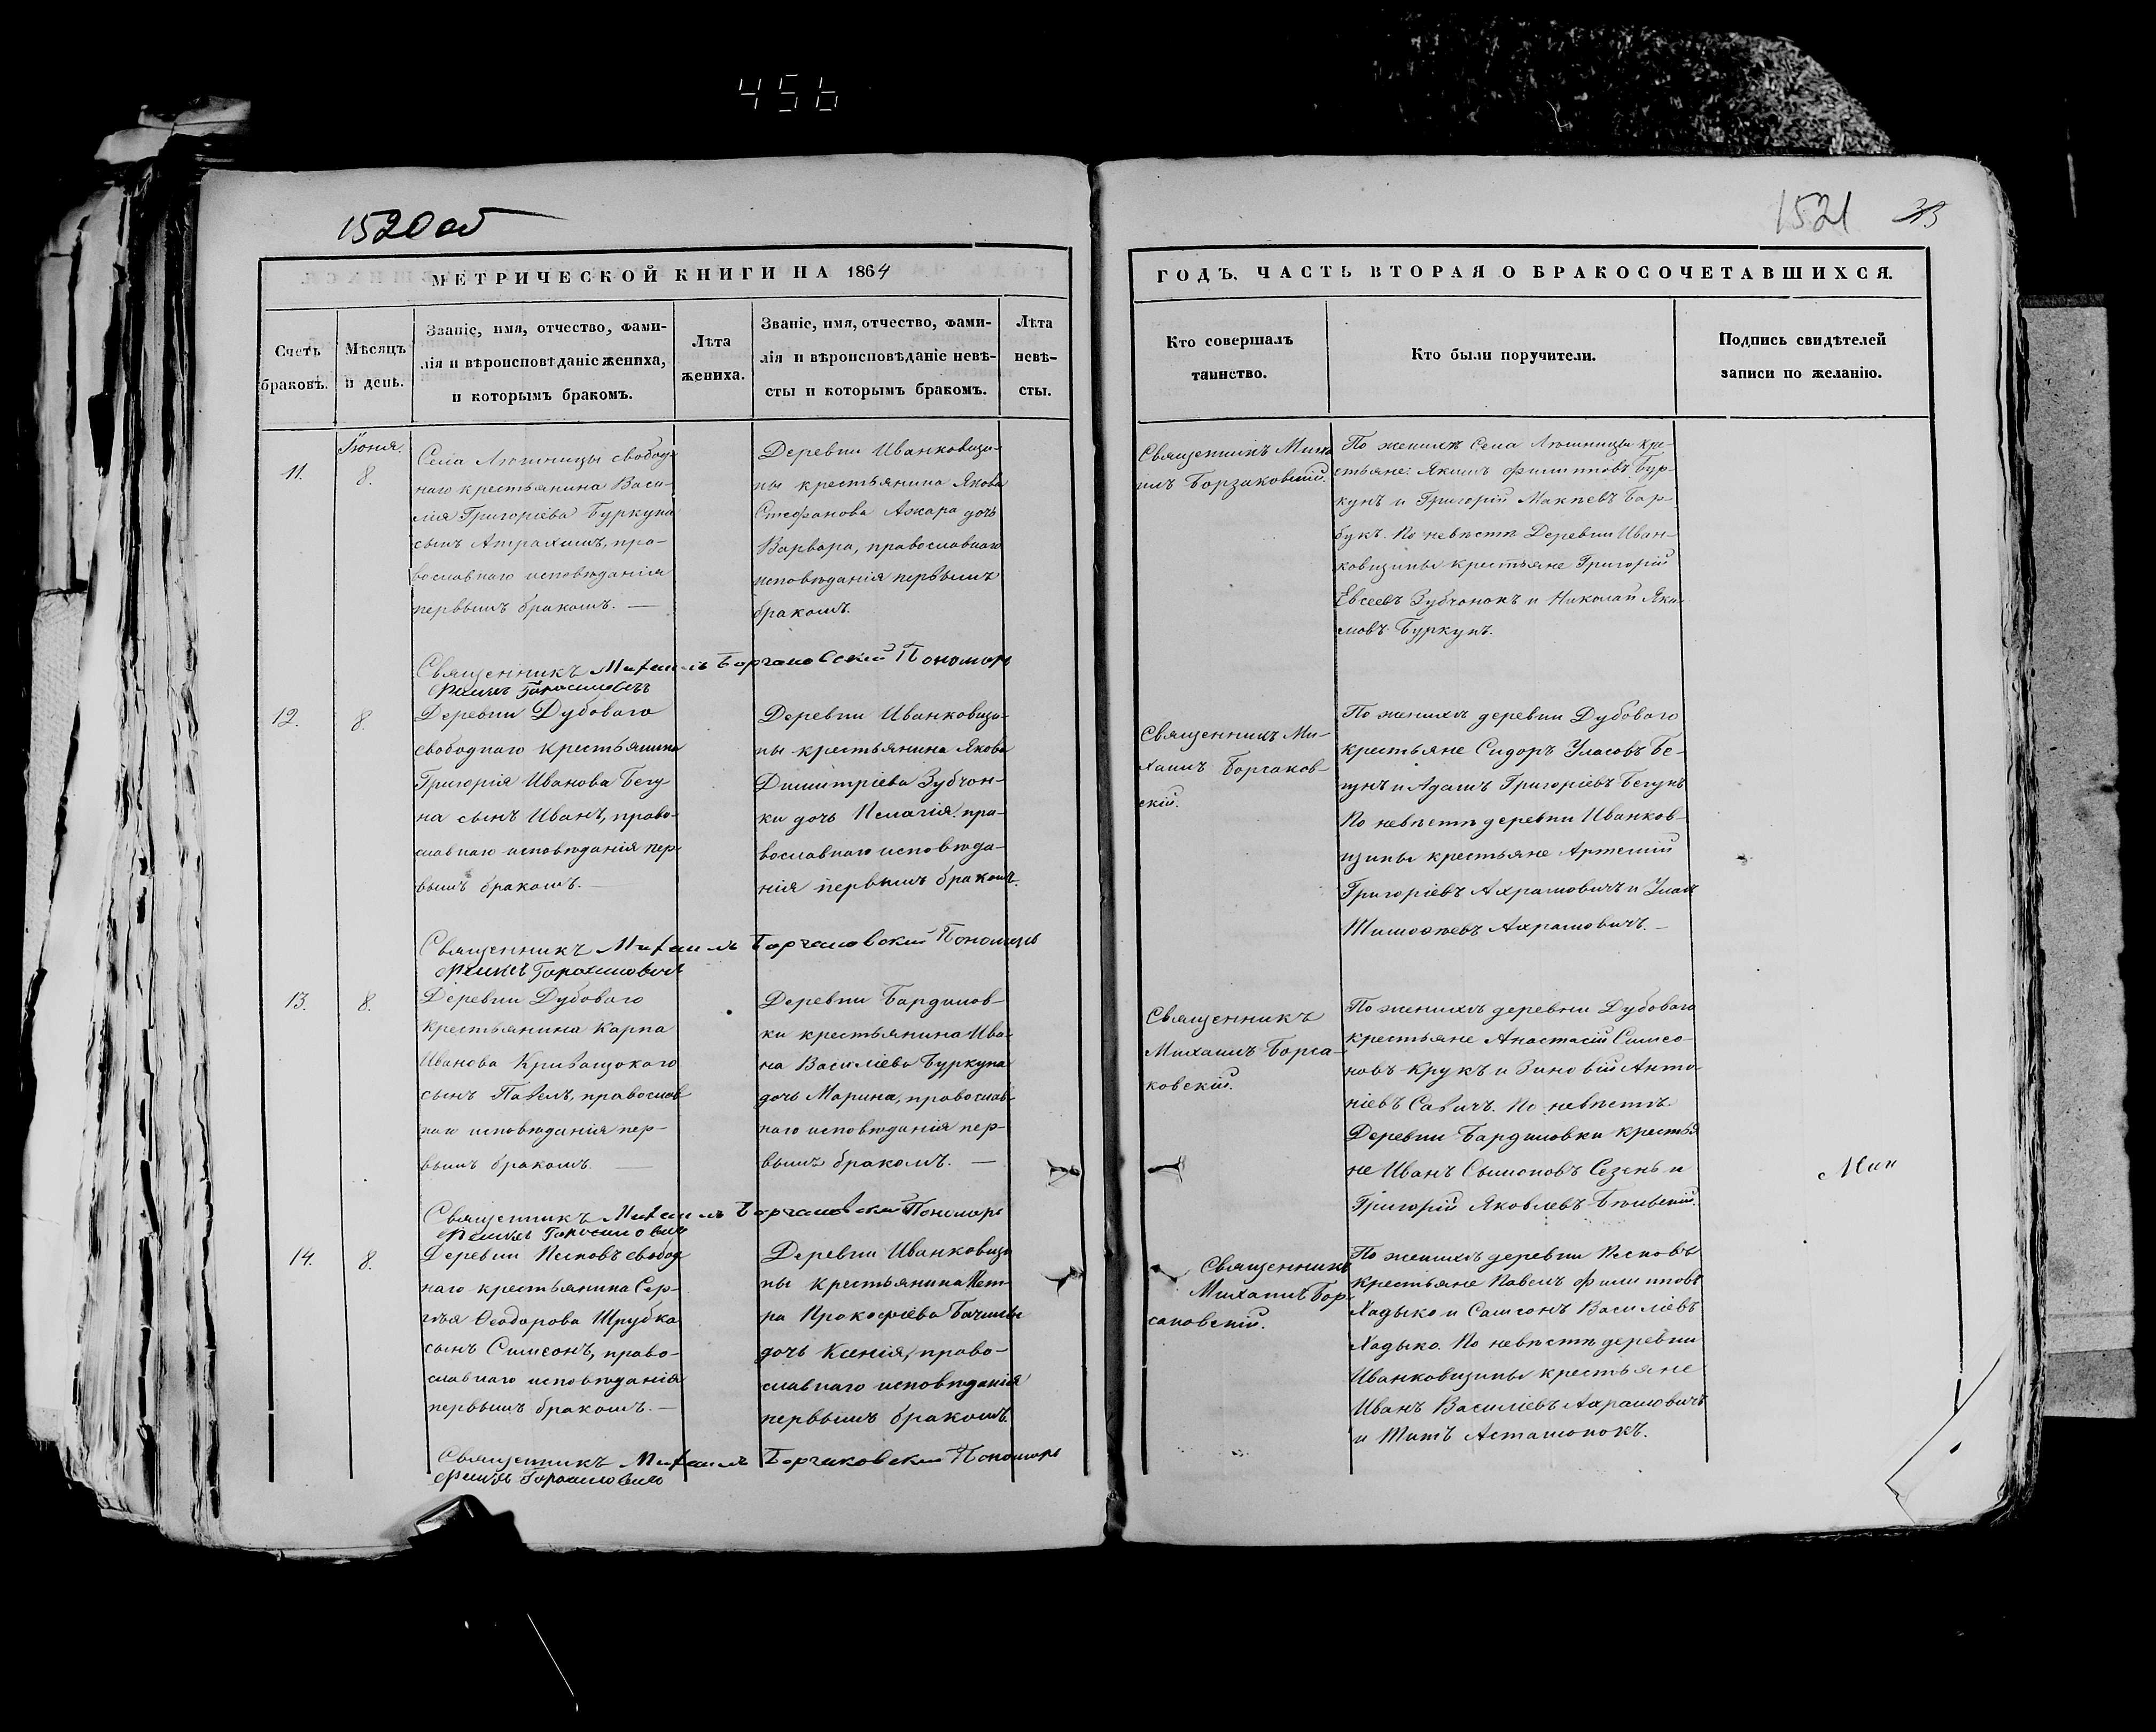 456
1520 об
1521 33
МЕТРИЧЕСКОЙ КНИГИ НА 1864
ГОДЪ, ЧАСТЬ ВТОРАЯ О БРАКОСОЧЕТАВШИХСЯ.
Счетъ
браковъ.
Мѣсяцъ
и день.
Званіе, имя, отчество, фами-
лія и вѣроисповѣданіе жениха,
и которымъ бракомъ.
Лѣта
жениха.
Званіе, имя, отчество, фами-
лія и вѣроисповѣданіе невѣ-
сты и которымъ бракомъ.
Лѣта
невѣ-
сты.
Кто совершалъ
таинство.
Кто были поручители.
Подпись свидѣтелей
записи по желанію.
11.
Іюня.
8.
Села Люшницы свобод
наго крестьянина Васи-
лія Григоріева Буркуна
сынъ пра-
вославнаго исповѣданія
первымъ бракомъ. —
Деревни Иванковщи-
ны крестьянина Якова
Стефанова Ажара дочь
Варвара, православнаго
исповѣданія первымъ
бракомъ.
Священникъ Миха
илъ Борзаковскій.
По женихѣ Села Люшницы кре-
стьяне: Якимъ Филипповъ Бур-
кунъ и Григорій Бар-
букъ. По невѣстѣ Деревни Иван-
ковщины крестьяне Григорій
Евсеевъ Зубчонокъ и Николай Яки-
мовъ Буркунъ.
Священникъ Михаилъ Борзаковскій Пономарь
12.
8.
Деревни Дубоваго
свободнаго крестьянина
Григорія Иванова Бегу-
на сынъ Иванъ, право-
славнаго исповѣданія пер
вымъ бракомъ. —
Деревни Иванковщи-
ны крестьянина Якова
Димитріева Зубчон-
ки дочь Пелагія, пра-
вославнаго исповѣда-
нія первымъ бракомъ.
Священникъ Ми-
хаилъ Борзаков-
скій.
По женихѣ деревни Дубоваго
крестьяне Сидоръ Уласовъ Бе-
гунъ и Адамъ Григоріевъ Бегунъ
По невѣстѣ деревни Иванков-
щины крестьяне Артемій
Григоріевъ Ахрамовичъ и Улас
Тимофеевъ Ахрамовичъ. —
Священникъ Михаилъ Борзаковскій Пономарь
13.
8.
Деревни Дубоваго
крестьянина Карпа
Иванова Кривацокаго
сынъ Павелъ, православ
наго исповѣданія пер-
вымъ бракомъ. —
Деревни Бардиловъ-
ки крестьянина Ива-
на Василіева Буркуна
дочь Марина, православ
наго исповѣданія пер-
вымъ бракомъ. —
Священникъ
Михаилъ Борза-
ковскій.
По женихѣ деревни Дубоваго
крестьяне Анастасій Симео-
новъ Крукъ и Зиновій Анто-
ніевъ Савичъ. По невѣстѣ
Деревни Бардиловки крестья
не Иванъ Сымоновъ Сезень и
Григорій Яковлевъ
Мин
Священникъ Михаилъ Борзаковскій Пономарь
14.
8.
Деревни Песковъ свобод
наго крестьянина Сер-
гѣя Ѳеодорова Шрубка
сынъ Симеонъ, право-
славнаго исповѣданія
первымъ бракомъ. —
Деревни Иванковщи
ны крестьянина Пет-
ра Прокофіева Бачилы
дочь Ксенія, право-
славнаго исповѣданія
первымъ бракомъ.
Священникъ
Михаилъ Бор-
заковскій.
По женихѣ деревни Песковъ
крестьяне Павелъ Филипповъ
Хадыко и Самсонъ Василіевъ
Хадыко. По невѣстѣ деревни
Иванковщины крестьяне
Иванъ Василіевъ Ахрамовичъ
и Титъ Асташонокъ.
Священникъ Михаилъ Борзаковскій Пономарь